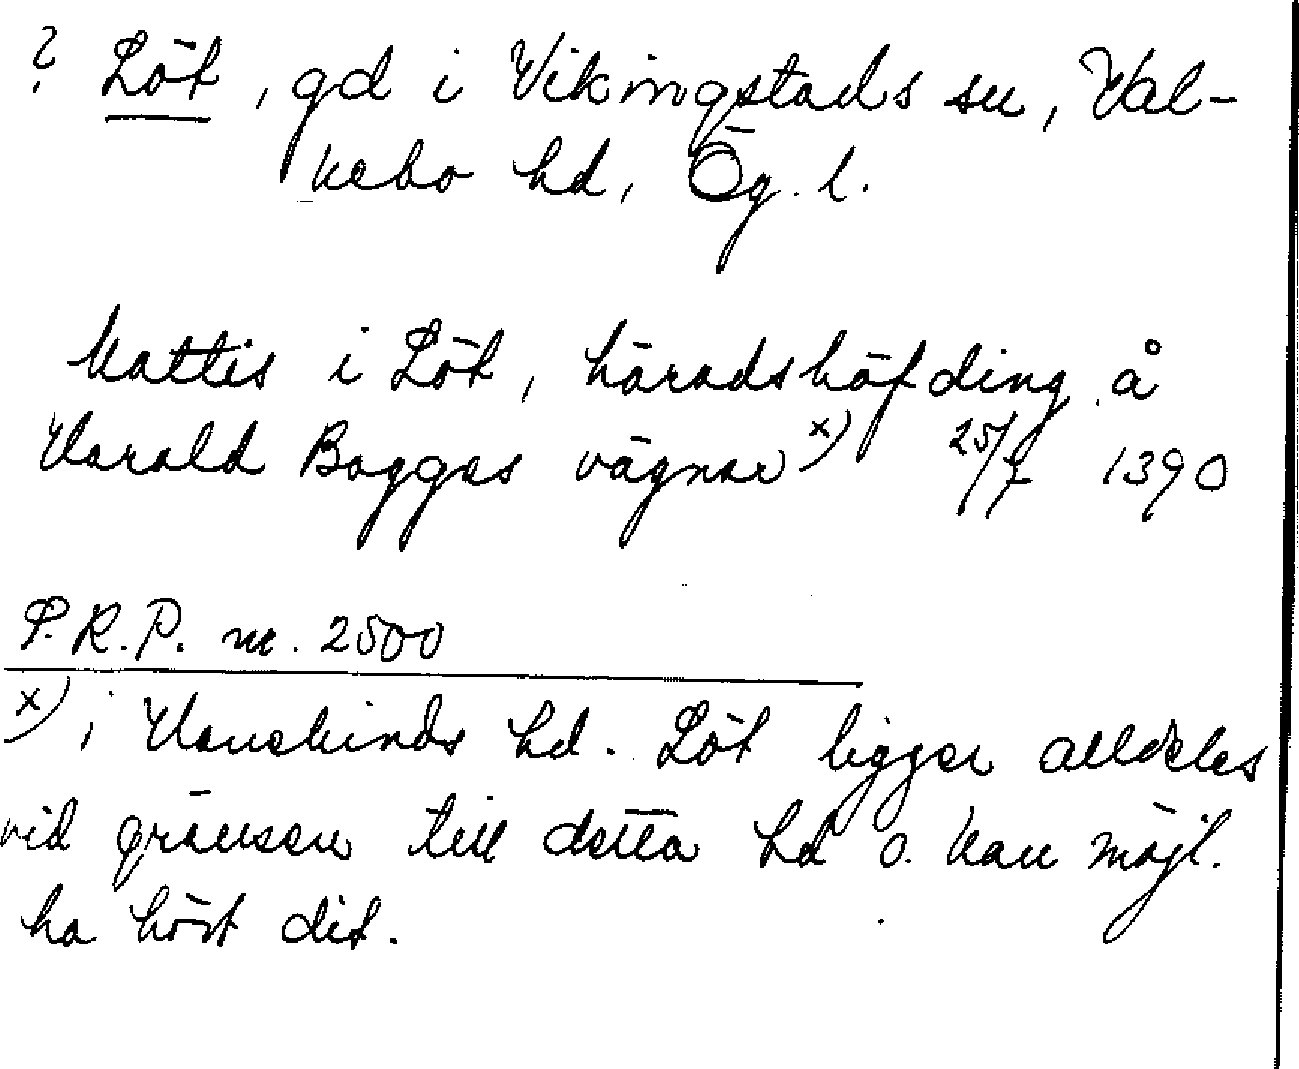 ? Löt, gd i Vikingstads sn, Val-
kebo hd, Ög. l.
Mattis i Löt, häradshöfding å
Harald Bagges vägnar x) 25/7 1390
P.R.P. nr. 2500
x) i Hanekinds hd. Löt ligger alldeles
vid gränsen till detta hd o. kan möjl.
ha hört dit.